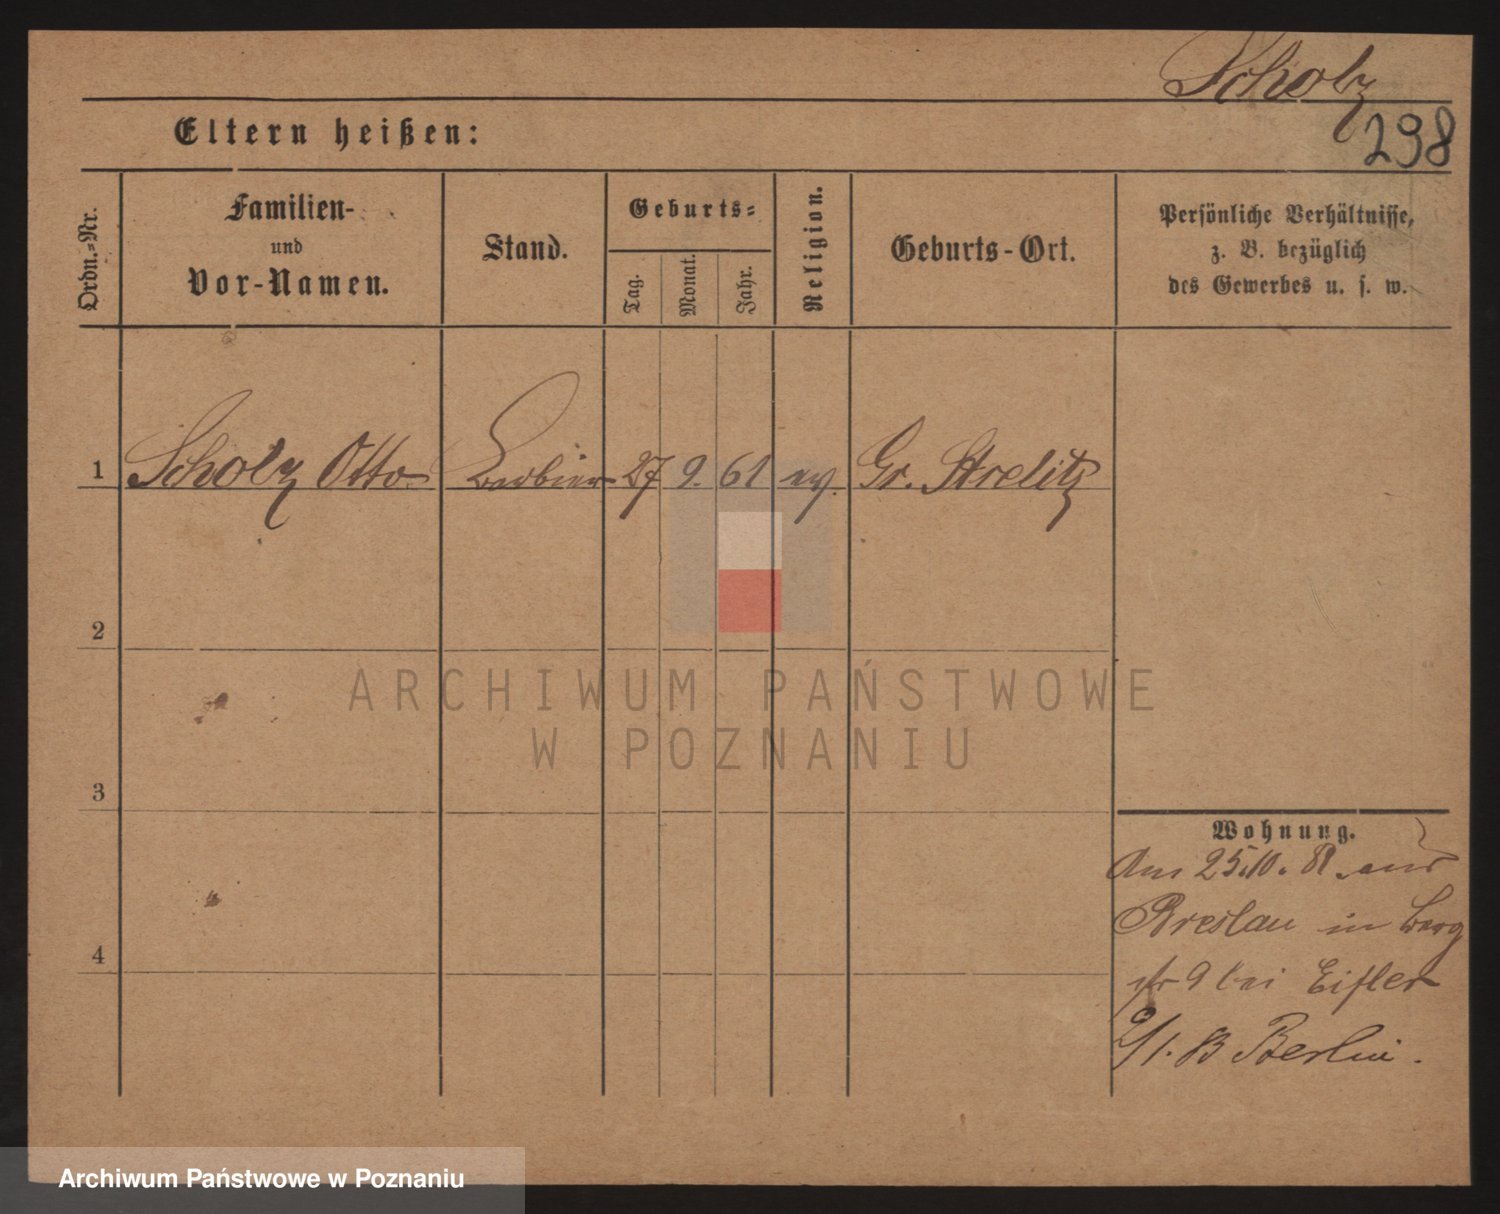 Scholz
298
Eltern heißen:
Ordn.-Nr.
Familien-
und
Vor-Namen.
Stand.
Geburts-
Tag.
Monat.
Jahr.
Religion.
Geburts-Ort.
Persönliche Verhältnisse,
z. B. bezüglich
des Gewerbes u. s. w.
1 Scholz Otto Barbier 27 9. 61 ev. Gr. Strelitz
2
3
4
ARCHIWUM PAŃSTWOWE
W POZNANIU
Wohnung.
Am 25.10. 81. aus
Breslau in Berg
str 9 bei Eifler
2/1. 83 Berlin.
Archiwum Państwowe w Poznaniu